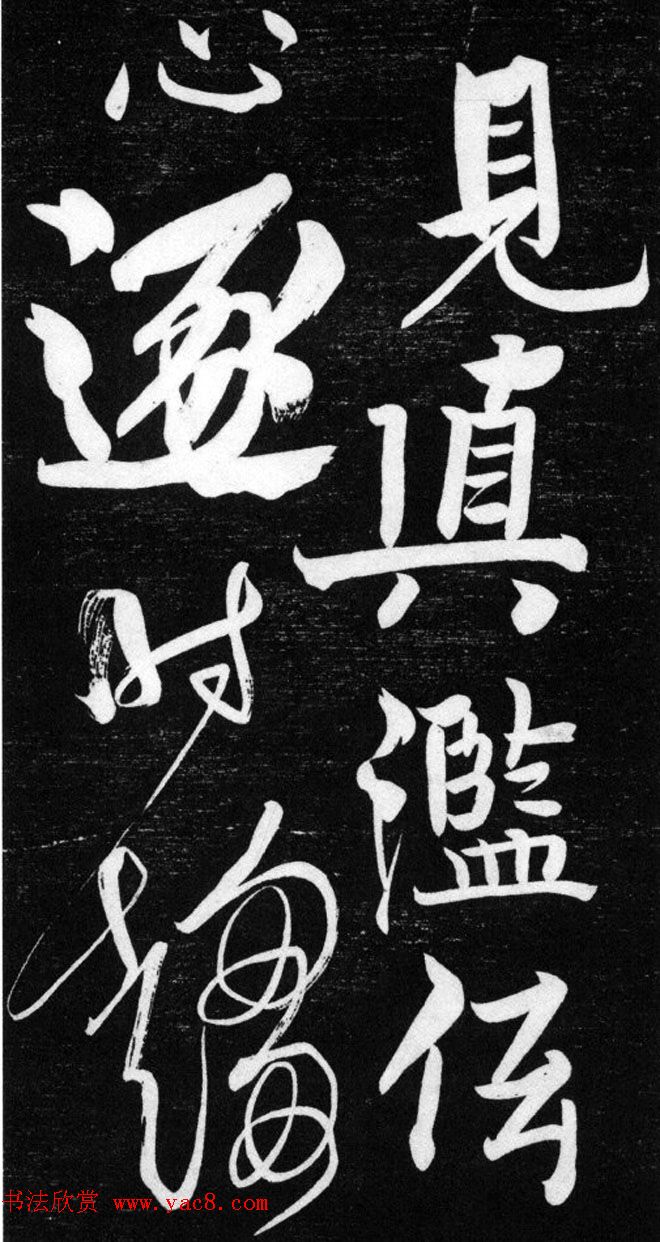 見真濫
心逐时趨
书法欣赏 www.yac8.com